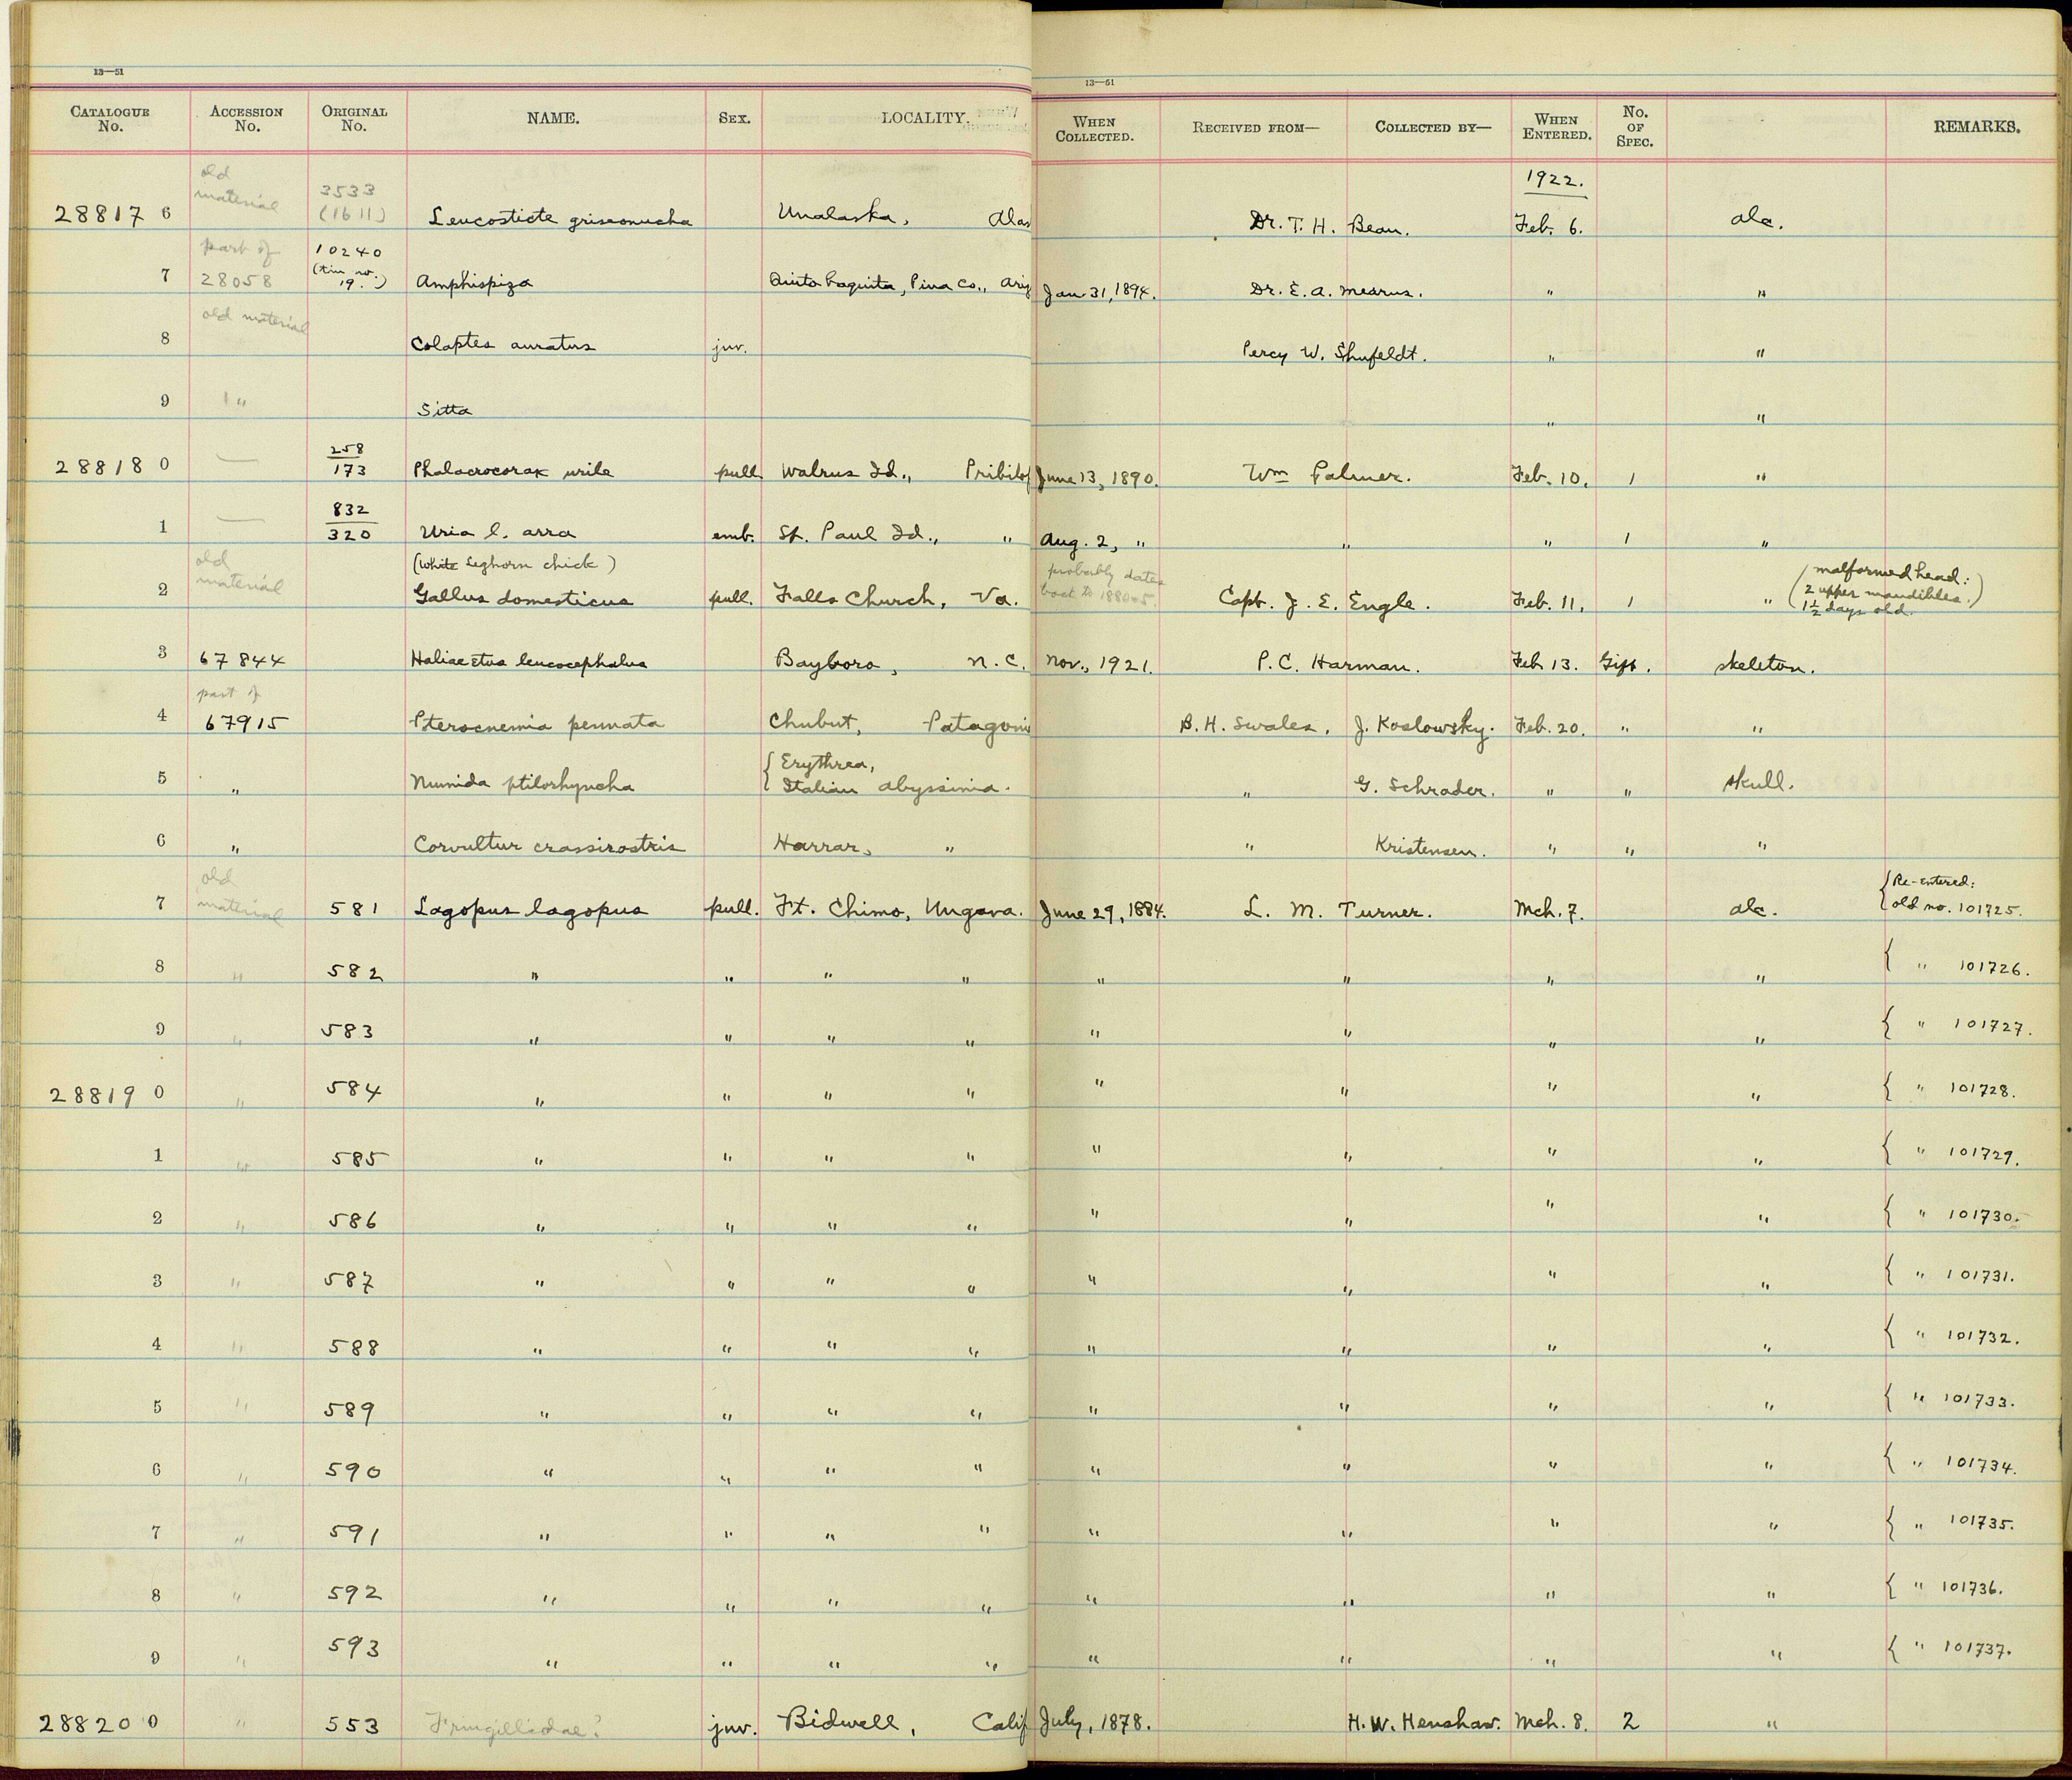 13—51
13—51
CATALOGUE No. ACCESSION No. ORIGINAL No. NAME. SEX. LOCALITY. WHEN COLLECTED. RECEIVED FROM— COLLECTED BY— WHEN ENTERED. No. OF SPEC. REMARKS.
1922.
288176 old material 3533 (1611) Leucosticte griseonucha Unalaska, Alas Dr. T. H. Bean. Feb. 6. alc.
7 part of 28058 10240 (tin no. 19.) Amphispiza Quitobaquita, Pima Co., Ariz Jan. 31, 1894. Dr. E. A. Mearns. " "
8 old material Colaptes auratus juv. Percy W. Shufeldt. " "
9 " Sitta " "
288180 — 258 173 Phalacrocorax urile pull. Walrus Id., Pribilof June 13, 1890. Wm Palmer. Feb. 10. 1 "
1 — 832 320 Uria l. arra emb. St. Paul Id., " Aug. 2, " " " 1 "
(White Leghorn chick)
2 old material Gallus domesticus pull. Falls Church, Va. probably dates back to Capt. J. E. Engle. Feb. 11. 1 " (malformed head: 2 upper mandibles. 1½ days old.)
3 67844 Haliaeetus leucocephalus Bayboro, N.C. Nov., 1921. P. C. Harman. Feb 13. Gift. skeleton.
4 part of 67915 Pterocnemia pennata Chubut, Patagonia B. H. Swales. J. Koslowsky. Feb. 20. " "
5 " Numida ptilorhyncha { Erythrea, Italian Abyssinia. " G. Schrader. " " skull.
6 " Corvultur crassirostris Harrar, " " Kristensen. " " "
7 old material 581 Lagopus lagopus pull. Ft. Chimo, Ungava. June 29, 1884. L. M. Turner. Mch. 7. alc. { Re-entered: old no. 101725.
8 " 582 " " " " " " " " { " 101726.
9 " 583 " " " " " " " " { " 101727.
288190 " 584 " " " " " " " " { " 101728.
1 " 585 " " " " " " " " { " 101729.
2 " 586 " " " " " " " " { " 101730.
3 " 587 " " " " " " " " { " 101731.
4 " 588 " " " " " " " " { " 101732.
5 " 589 " " " " " " " " { " 101733.
6 " 590 " " " " " " " " { " 101734.
7 " 591 " " " " " " " " { " 101735.
8 " 592 " " " " " " " " { " 101736.
9 " 593 " " " " " " " " { " 101737.
288200 " 553 Fringillidae? juv. Bidwell, Calif July, 1878. H. W. Henshaw. Mch. 8. 2 "